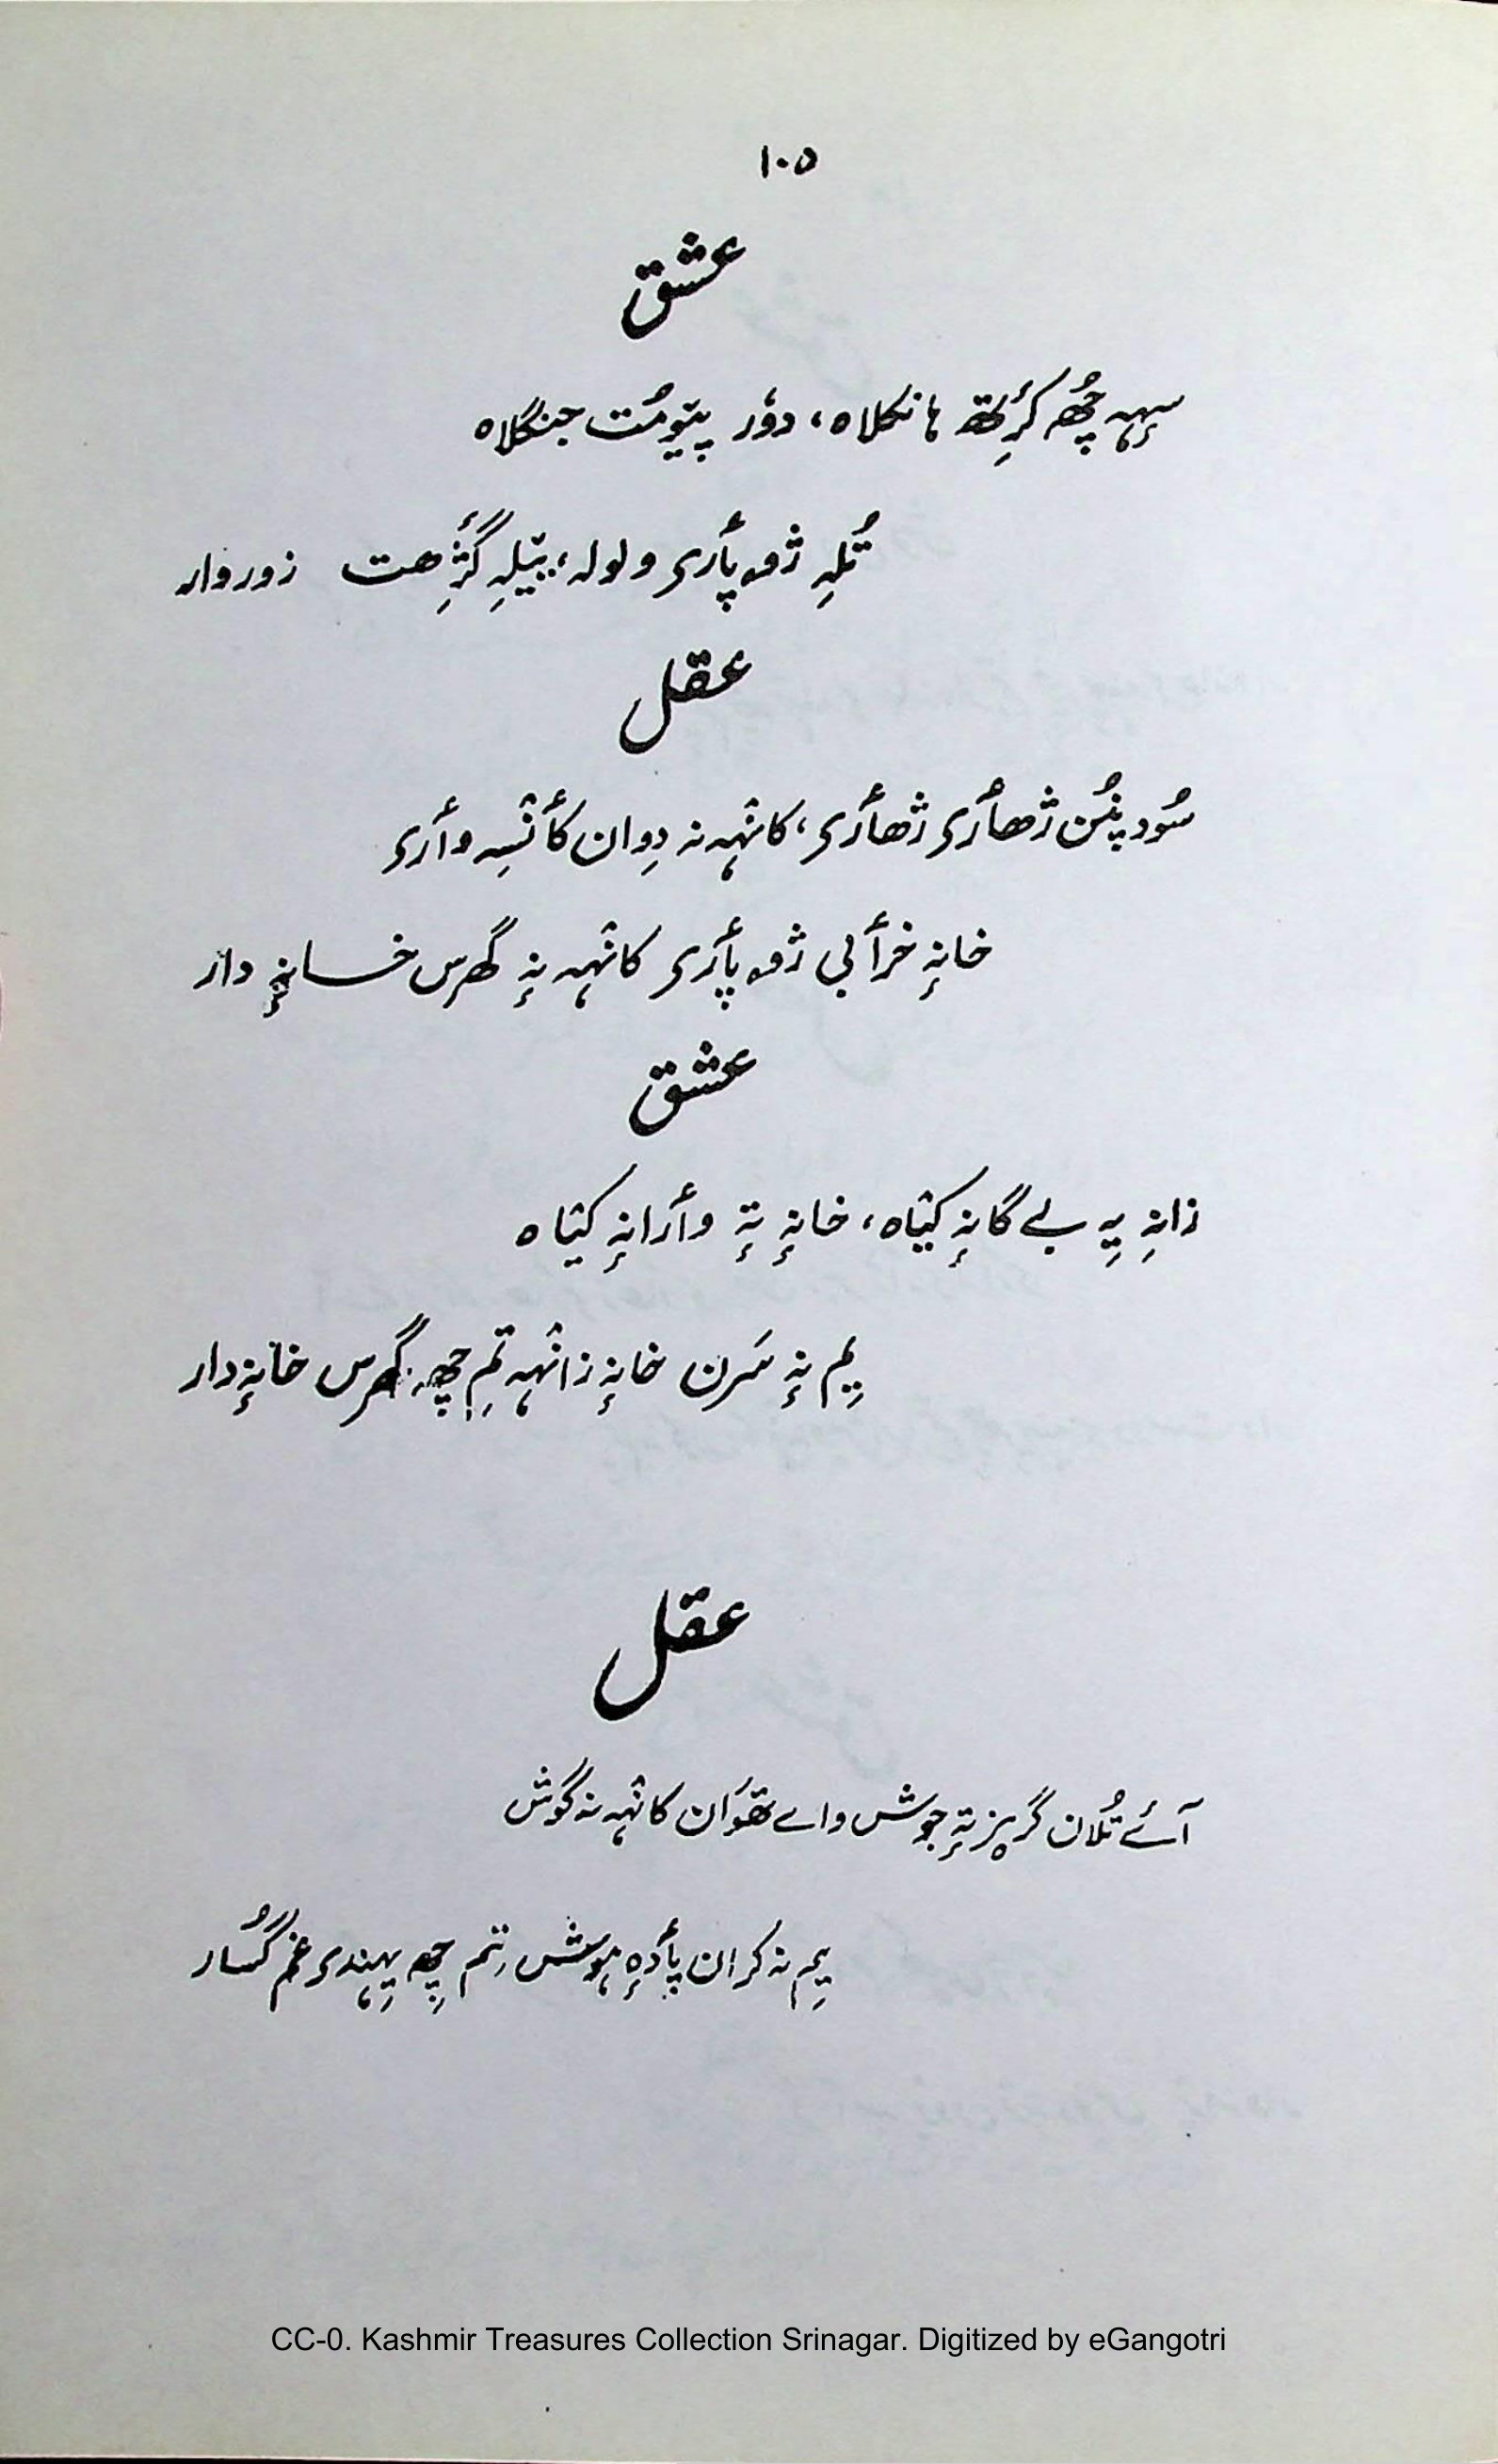 ۱۰۵
عشق
سہہ چھُ کٔرِتھ ہانکلاہ، دۄر پیٚومُت جنگلاہ
تُلہِ ژۄپأرۍ ولولہ، ییٚلہِ گژِھت زوروار
عقل
سُود پنُن ژھأرۍ ژھأرۍ، کانٛہہ نہ دِوان کأنٛسہِ وأرۍ
خانہٕ خرأبی ژۄپأرۍ کانٛہہ نہٕ گھرس خانہٕ دار
عشق
زانہِ یہِ بے گانہٕ کیٛاہ، خانہٕ تہٕ وأرانہٕ کیٛاہ
یِم نہٕ سَرن خانہٕ زانٛہہ تِم چھِہ گھرس خانہٕ دار
عقل
آے تُلان گریز تہٕ جوش واے تھوَان کانٛہہ نہ گوش
یِم نہ کران پأدہٕ ہوش تِم چھِہ یہِندۍ غم گُسار
CC-0. Kashmir Treasures Collection Srinagar. Digitized by eGangotri